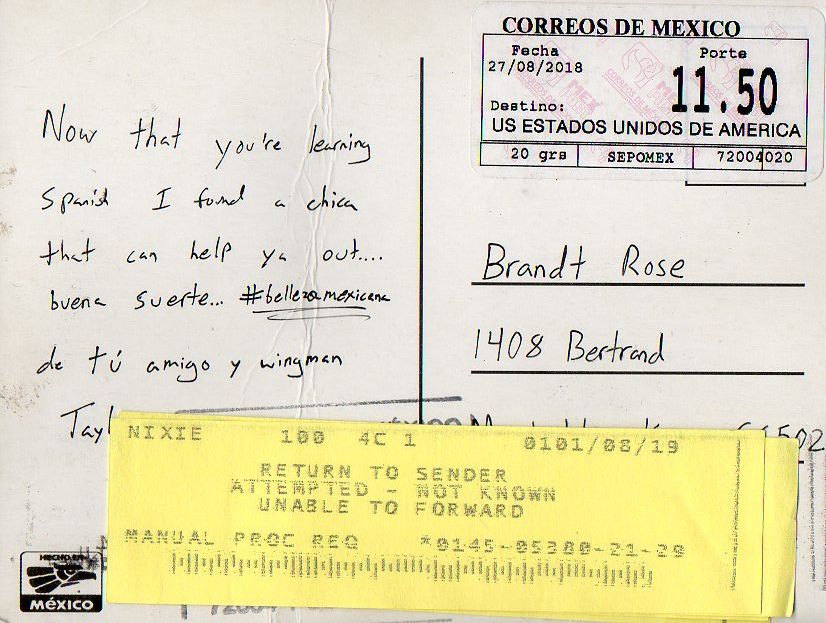 CORREOS DE MEXICO
Fecha
Porte
27/08/2018
11.50
Destino:
US ESTADOS UNIDOS DE AMERICA
20 grs SEPOMEX 72004020
Now that you're learning
Spanish I found a chica
that can help ya out....
buena suerte... #bellezamexicana
de tú amigo y wingman
Tayl
Brandt Rose
1408 Bertrand
66502
NIXIE 100 4C 1 0101/08/19
RETURN TO SENDER
ATTEMPTED - NOT KNOWN
UNABLE TO FORWARD
MANUAL PROC REQ *0145-05380-21-29
HECHO EN
MÉXICO